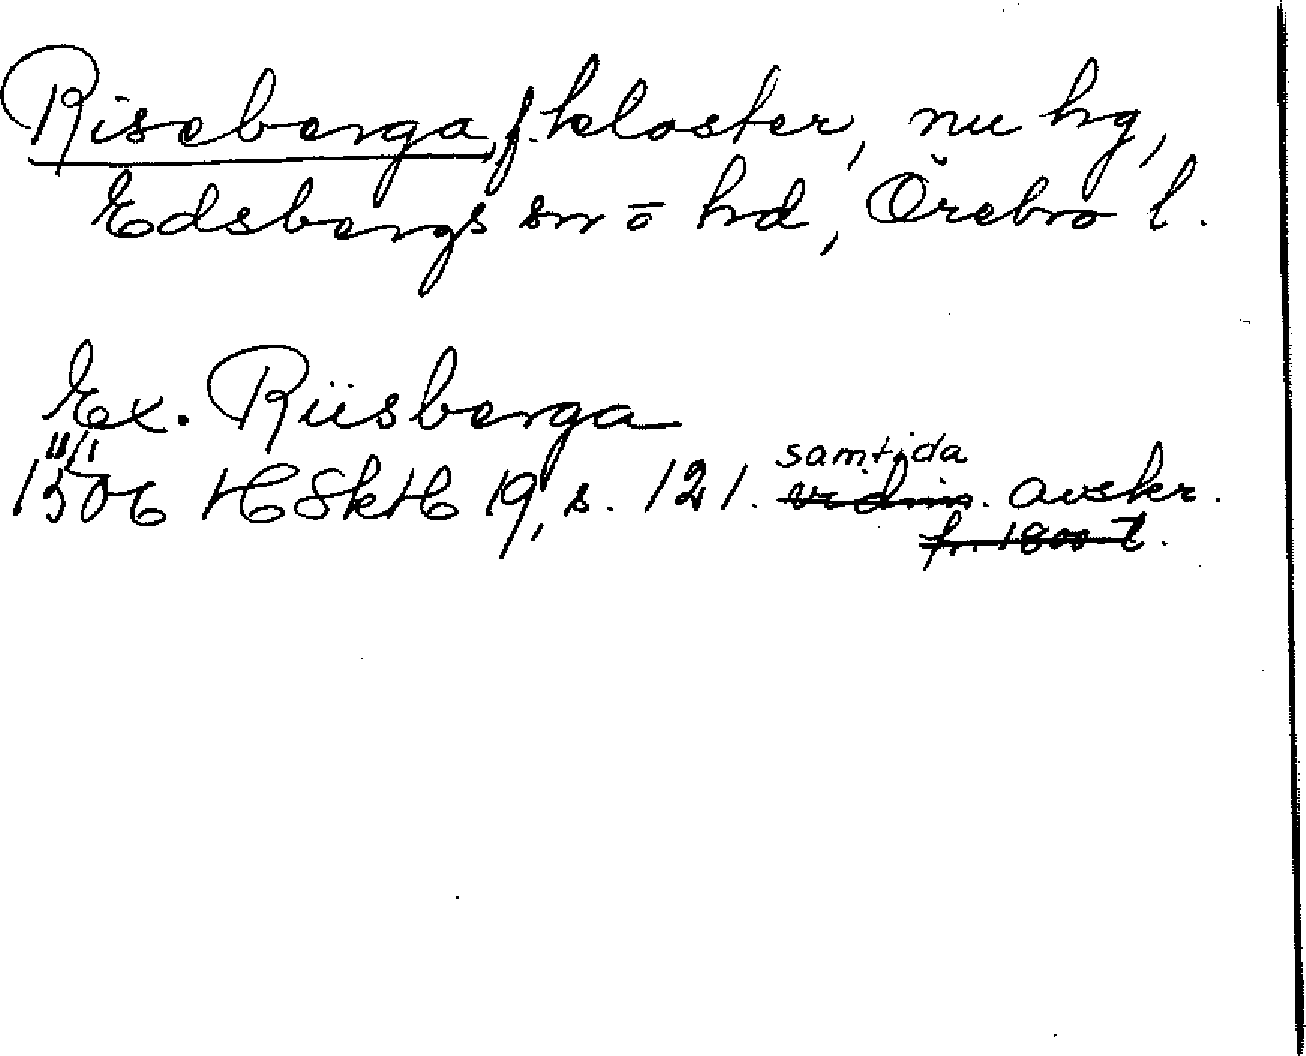 Riseberga, f. kloster, nu hg,
Edsbergs sn o hd, Örebro l.
Ex. Riisberga
11/1
samtida
1506 HSkH 19, s. 121. vidim. avskr.
fr. 1800-t.